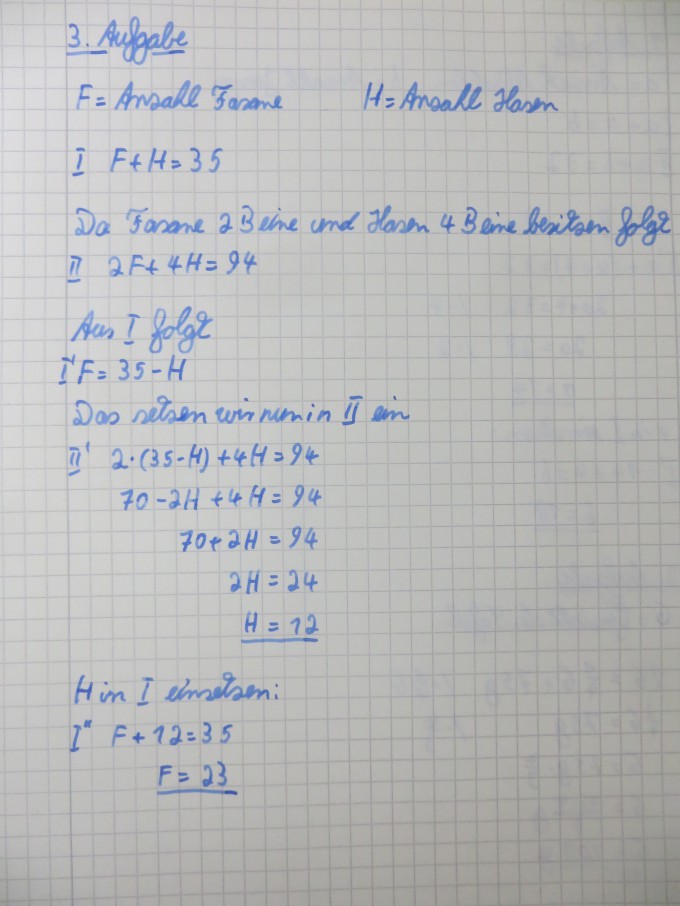 3. Aufgabe
F = Anzahl Fasane H = Anzahl Hasen
I F + H = 35
Da Fasane 2 Beine und Hasen 4 Beine besitzen folgt
II 2F + 4H = 94
Aus I folgt
I' F = 35 - H
Das setzen wir nun in II ein
II' 2·(35-H) + 4H = 94
70 - 2H + 4H = 94
70 + 2H = 94
2H = 24
H = 12
H in I einsetzen:
I" F + 12 = 35
F = 23